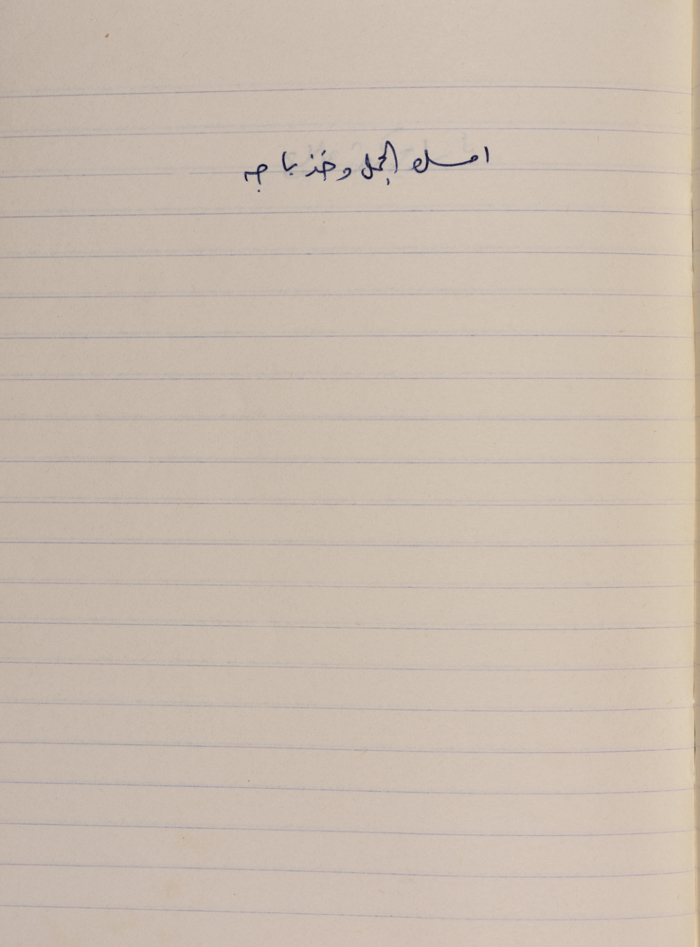 امسك الجمل وخذ باجه